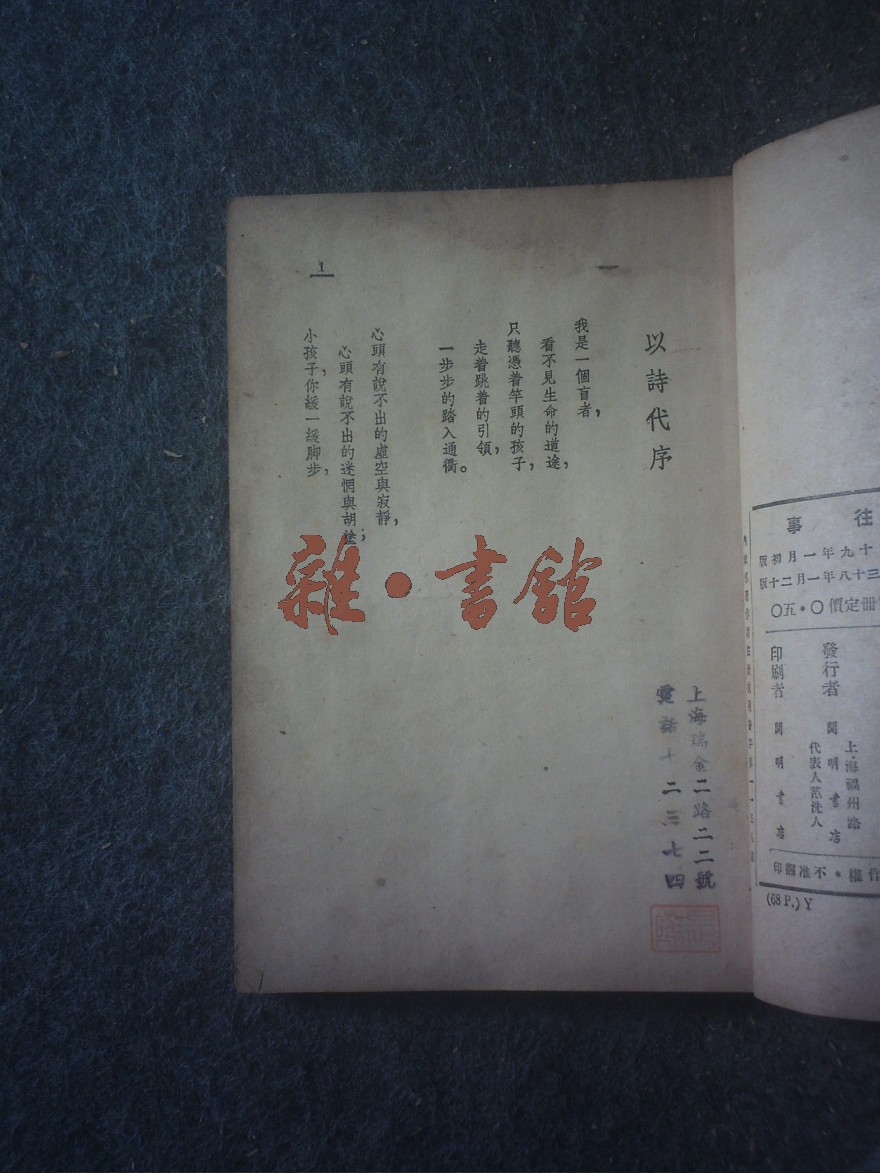 以詩代序
一
我是一個盲者，
看不見生命的道途，
只聽憑着竿頭的孩子，
走着跳着的引領，
一步步的踏入通衢。
心頭有說不出的虛空與寂靜，
心頭有說不出的迷惘與胡塗；
小孩子，你緩一緩脚步，
1
雜·書館
上海瑞金二路二二號
電話十二三七四
往事
十九年一月初版
三十八年一月二十版
冊定價〇·五〇
發行者
上海福州路
開明書店
代表人范洗人
印刷者
開明書店
作權·不准翻印
(68 P.) Y